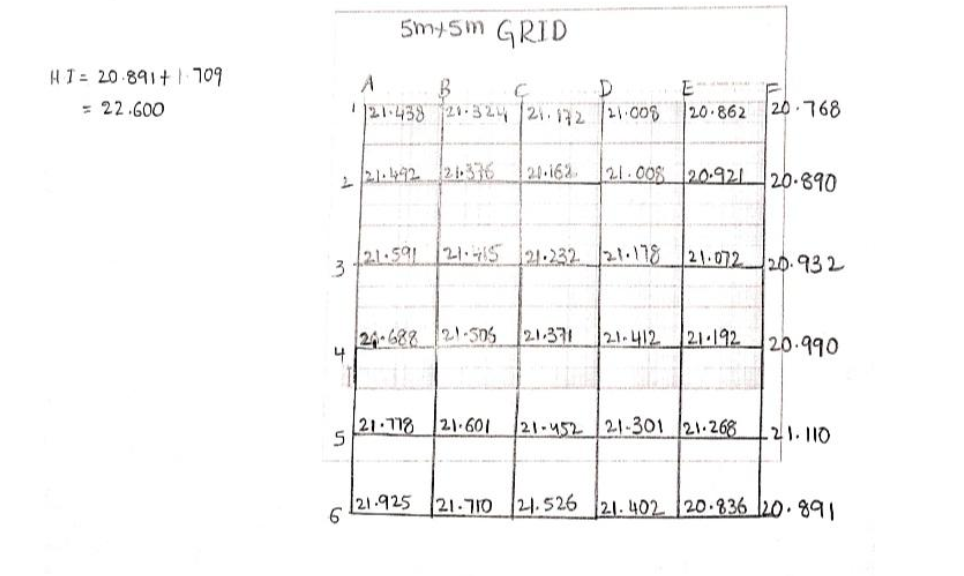 5m+5m GRID
HI = 20.891 + 1.709
= 22.600
A B C D E F
1 21.438 21.324 21.172 21.008 20.862 20.768
2 21.492 21.376 21.162 21.008 20.921 20.890
3 21.591 21.415 21.232 21.178 21.072 20.932
4 21.688 21.505 21.371 21.412 21.192 20.990
5 21.778 21.601 21.452 21.301 21.268 21.110
6 21.925 21.710 21.526 21.402 20.836 20.891